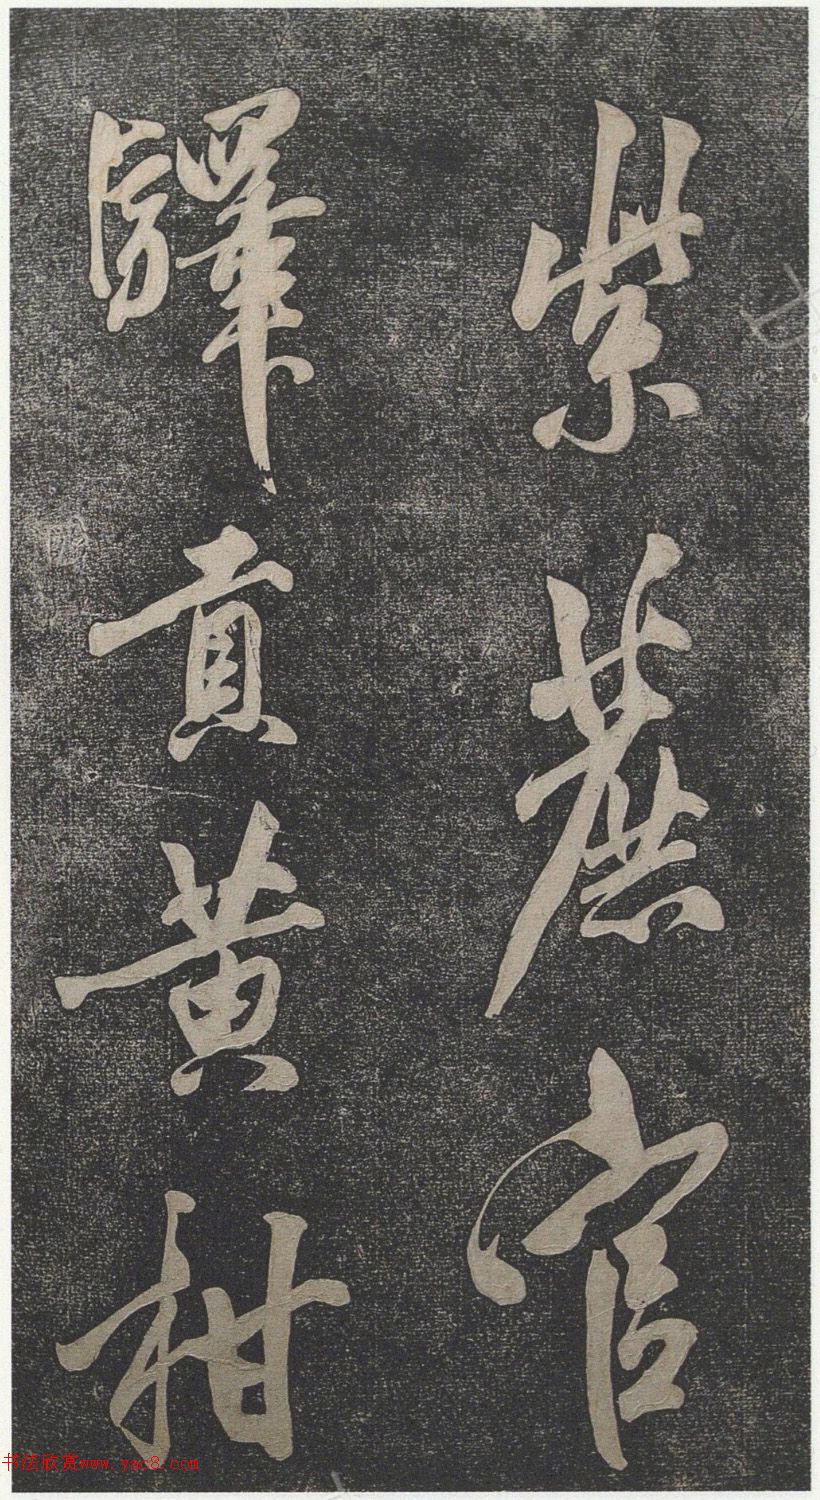 紫蔗官
驛貢黄柑
书法欣赏www.yac8.com